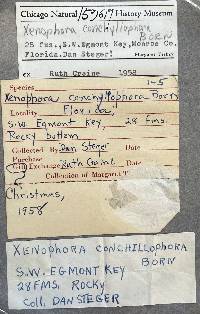 Chicago Natural History Museum
153617
Xenophora conchyliophora
BORN
28 fms., S.W. Egmont Key, Monroe Co.
Florida. Dan Steger!
ex Ruth Craine 1958
Species 1-5
Xenophora conchyliophora Born
Locality Florida,
S.W. Egmont Key, 28 fms.
Rocky bottom
Collected By Dan Steger Date
Purchase
Gift Exchange Ruth Craine Date
Collection of Margaret T
Christmas,
1958
XENOPHORA CONCHILLOPHORA
BORN
S.W. EGMONT KEY
28 FMS. ROCKY
COLL. DAN STEGER